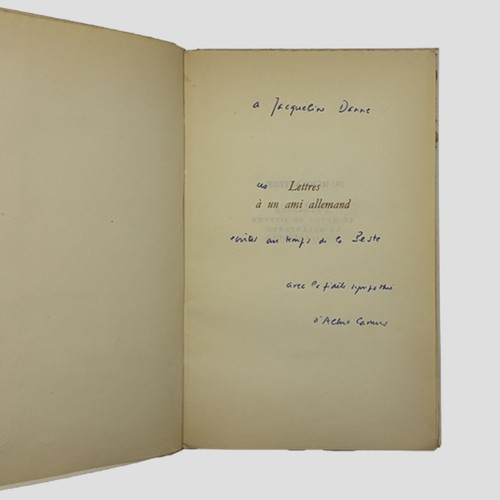 a Jacqueline Danne
ces Lettres
à un ami allemand
écrites au temps de la Peste
avec la fidèle sympathie
d'Albert Camus